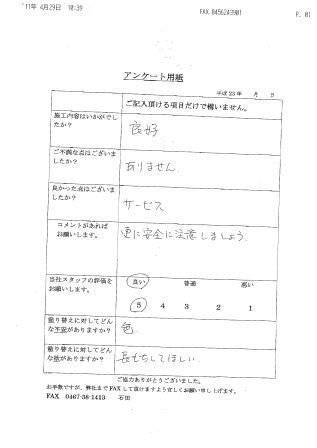 '11年 4月29日 10:39 FAX 0456243901 P. 01
アンケート用紙
平成23年 月 日
ご記入頂ける項目だけで構いません。
施工内容はいかがでし
たか?
良好
ご不満な点はございま
したか?
ありません
良かった点はございま
したか?
サービス
コメントがあれば
お願いします。
更に安全に注意しましょう
当社スタッフの評価を
お願いします。
良い 普通 悪い
5 4 3 2 1
塗り替えに対してどん
な不安がありますか?
色
塗り替えに対してどん
な
がありますか?
長もちしてほしい
ご協力ありがとうございました。
お手数ですが、弊社までFAXして頂けますよう宜しくお願い申し上げます。
FAX 0467-38-1413 石田